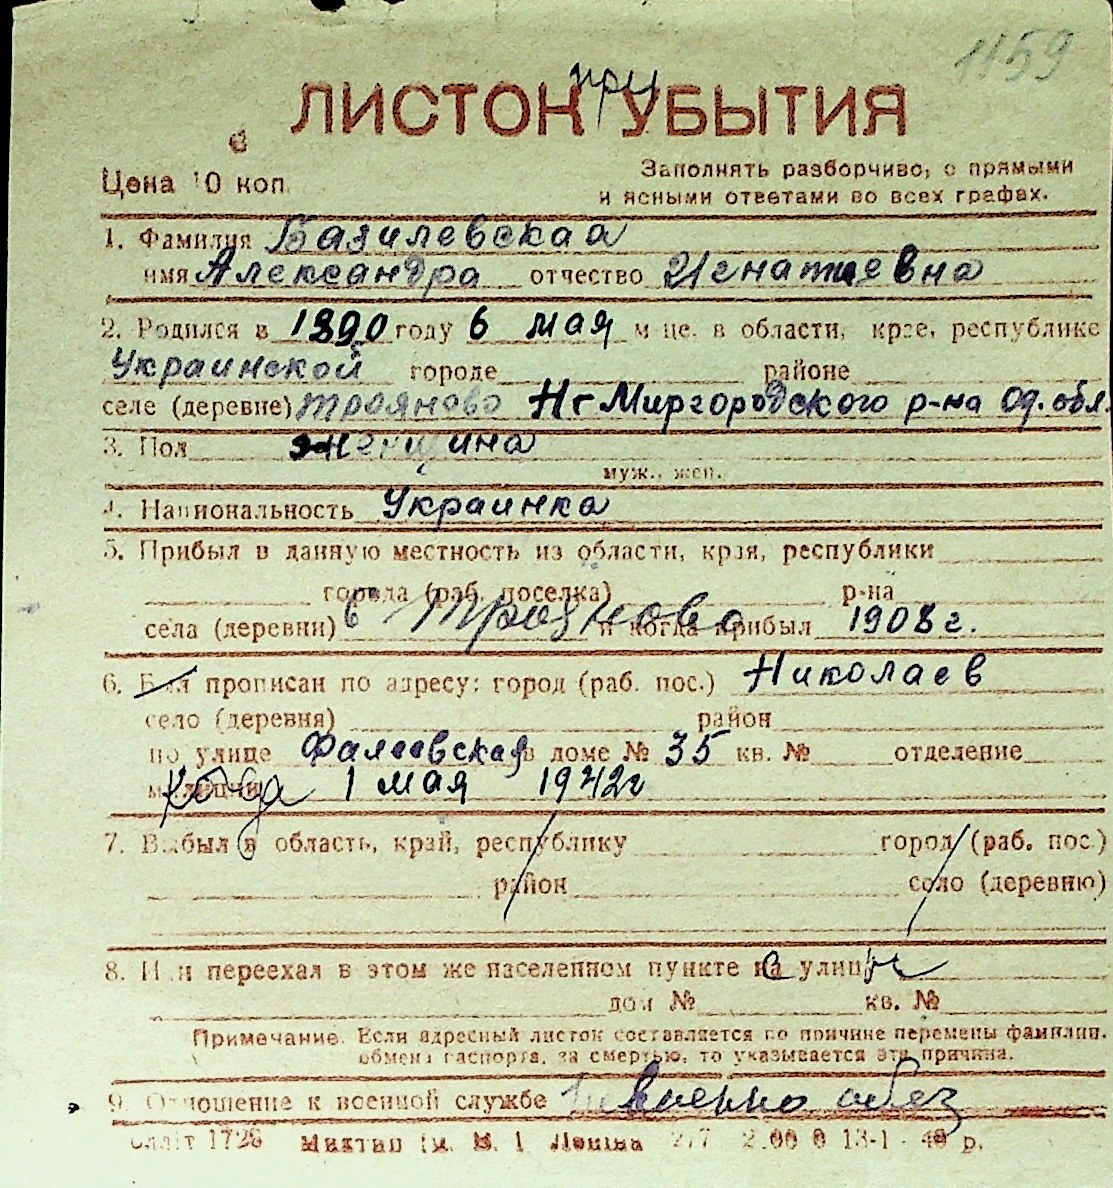 1159
при
ЛИСТОК УБЫТИЯ
в
Цена 10 коп.
Заполнять разборчиво, с прямыми
и ясными ответами во всех графах.
1. Фамилия Базилевская
имя Александра отчество Игнатиевна
2. Родился в 1890 году 6 мая м-це, в области, крае, республике
Украинской городе районе
селе (деревне) Трояново Нг Миргородского р-на Од. обл.
3. Пол женщина
муж., жен.
4. Национальность Украинка
5. Прибыл в данную местность из области, края, республики
города (раб. поселка) р-на
села (деревни) Трояново и когда прибыл 1908 г.
6. Был прописан по адресу: город (раб. пос.) Николаев
село (деревня) район
по улице Фалеевская в доме № 35 кв. № отделение
милиции когда 1 мая 1942 г
7. Выбыл в область, край, республику город (раб. пос.)
район село (деревню)
8. Или переехал в этом же населенном пункте на улицу
дом № кв. №
Примечание. Если адресный листок составляется по причине перемены фамилии,
обмена паспорта, за смертью, то указывается эта причина.
9. Отношение к военной службе военно обяз
1728 Миктип ім. В. І. Леніна 277 2.00 0 13-1 - 40 р.